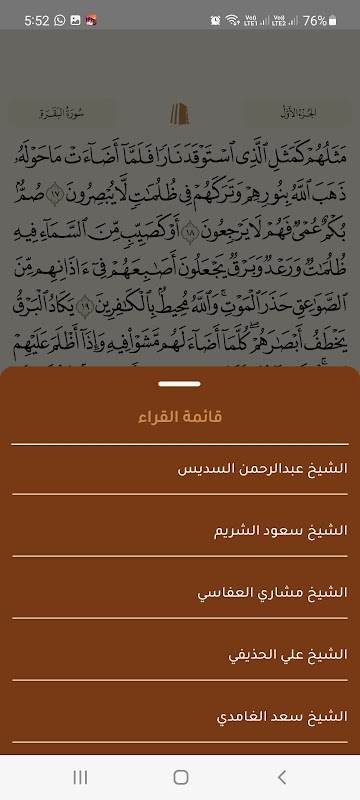 5:52
Vo) LTE1 Vo) LTE2 76%
سُورَةُ البَقَرَةِ
الجُزءُ الأَوَّلُ
مَثَلُهُمْ كَمَثَلِ ٱلَّذِى ٱسْتَوْقَدَ نَارًا فَلَمَّآ أَضَآءَتْ مَا حَوْلَهُۥ
ذَهَبَ ٱللَّهُ بِنُورِهِمْ وَتَرَكَهُمْ فِى ظُلُمَٰتٍ لَّا يُبْصِرُونَ ١٧ صُمٌّۢ
بُكْمٌ عُمْىٌ فَهُمْ لَا يَرْجِعُونَ ١٨ أَوْ كَصَيِّبٍ مِّنَ ٱلسَّمَآءِ فِيهِ
ظُلُمَٰتٌ وَرَعْدٌ وَبَرْقٌ يَجْعَلُونَ أَصَٰبِعَهُمْ فِىٓ ءَاذَانِهِم مِّنَ
ٱلصَّوَٰعِقِ حَذَرَ ٱلْمَوْتِ ۚ وَٱللَّهُ مُحِيطٌۢ بِٱلْكَٰفِرِينَ ١٩ يَكَادُ ٱلْبَرْقُ
يَخْطَفُ أَبْصَٰرَهُمْ ۖ كُلَّمَآ أَضَآءَ لَهُم مَّشَوْا۟ فِيهِ وَإِذَآ أَظْلَمَ عَلَيْهِمْ
قائمة القراء
الشيخ عبدالرحمن السديس
الشيخ سعود الشريم
الشيخ مشاري العفاسي
الشيخ علي الحذيفي
الشيخ سعد الغامدي